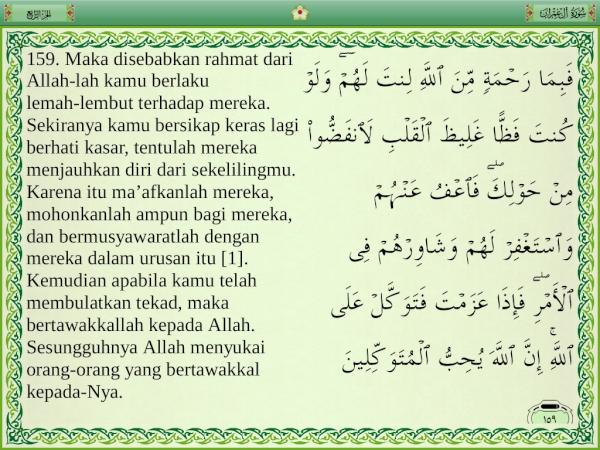 الجزء الرابع
سورة آل عمران
159. Maka disebabkan rahmat dari
Allah-lah kamu berlaku
lemah-lembut terhadap mereka.
Sekiranya kamu bersikap keras lagi
berhati kasar, tentulah mereka
menjauhkan diri dari sekelilingmu.
Karena itu ma’afkanlah mereka,
mohonkanlah ampun bagi mereka,
dan bermusyawaratlah dengan
mereka dalam urusan itu [1].
Kemudian apabila kamu telah
membulatkan tekad, maka
bertawakkallah kepada Allah.
Sesungguhnya Allah menyukai
orang-orang yang bertawakkal
kepada-Nya.
فَبِمَا رَحْمَةٍ مِّنَ ٱللَّهِ لِنتَ لَهُمْ ۖ وَلَوْ
كُنتَ فَظًّا غَلِيظَ ٱلْقَلْبِ لَٱنفَضُّوا۟
مِنْ حَوْلِكَ ۖ فَٱعْفُ عَنْهُمْ
وَٱسْتَغْفِرْ لَهُمْ وَشَاوِرْهُمْ فِى
ٱلْأَمْرِ ۖ فَإِذَا عَزَمْتَ فَتَوَكَّلْ عَلَى
ٱللَّهِ ۚ إِنَّ ٱللَّهَ يُحِبُّ ٱلْمُتَوَكِّلِينَ
١٥٩